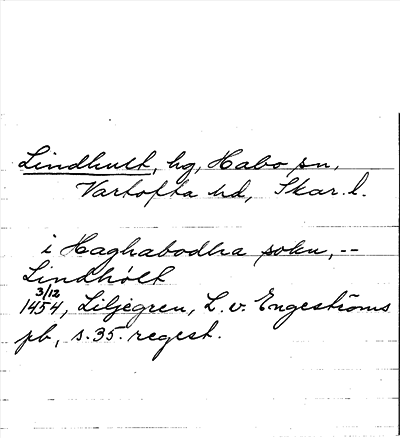 Lindhult, hg, Habo sn,
Vartofta hd, Skar. l.
i Haghabodha sokn, --
Lindhólt
3/12
1454, Liljegren, L. v. Engeströms
pb, s. 35. regest.